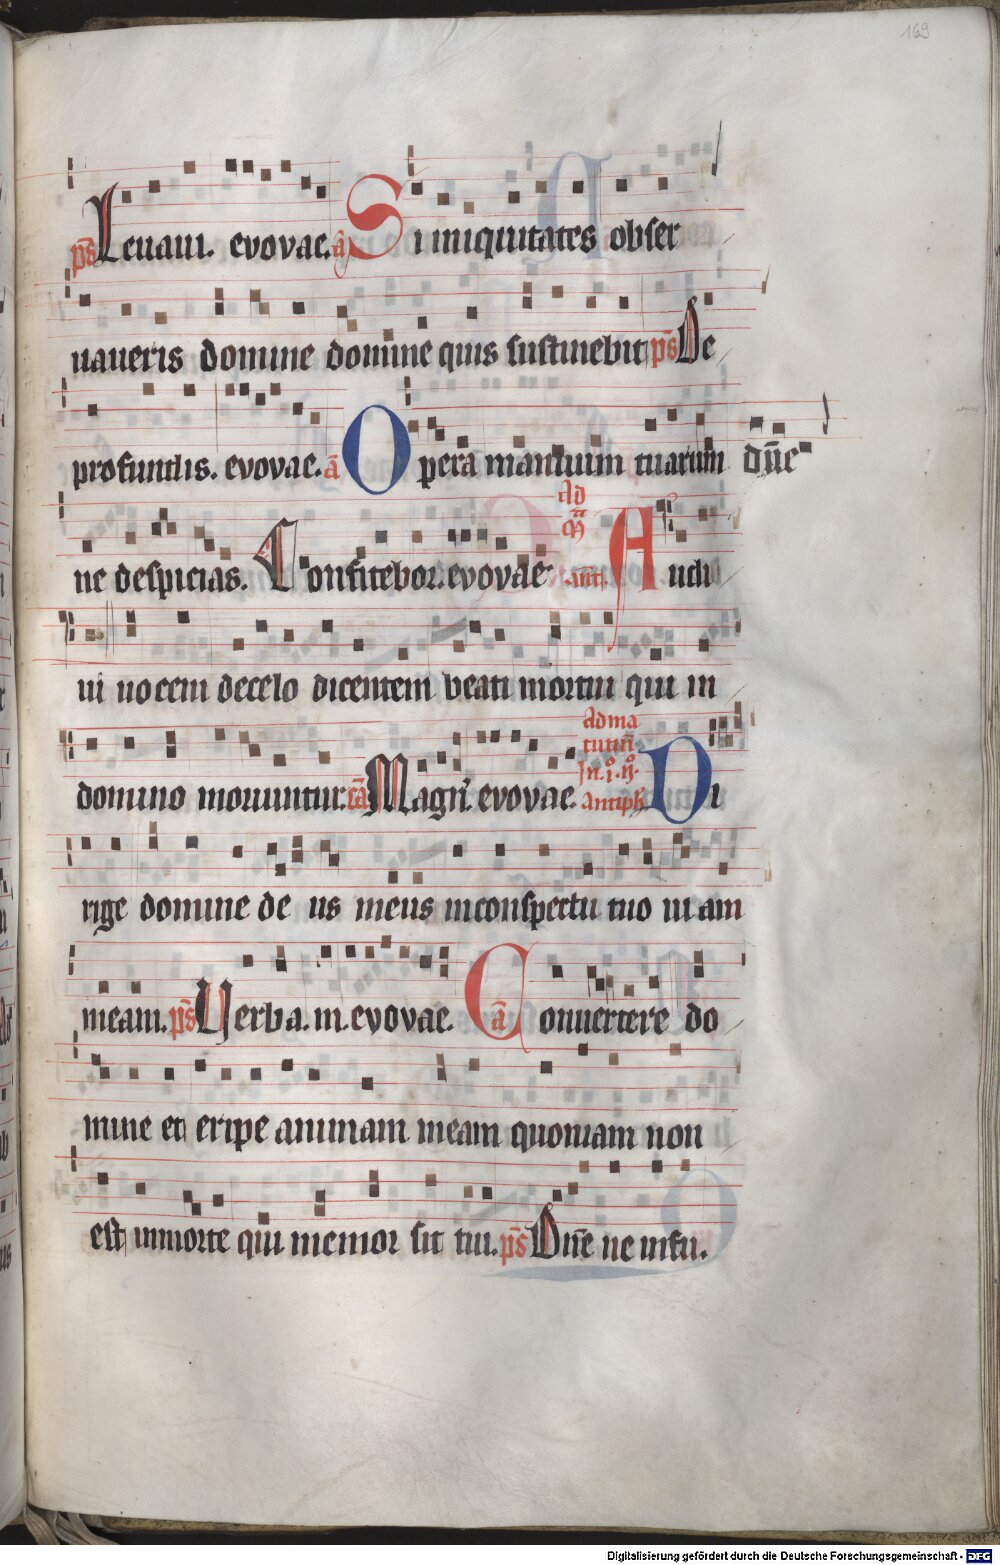 169
p̄s Leuaui. evovae. ā Si iniquitates obser
uaueris domine domine quis sustinebit p̄s De
profundis. evovae. ā Opera manuum tuarum dn̄e
Ad
M
ne despicias. Confitebor. evovae. ant̄. Audi
ui uocem de celo dicentem beati mortui qui in
Ad ma
tutin̄
In .i. n̄.
domino moriuntur. Magn̄. evovae. antiph̄ Di
rige domine de us meus in conspectu tuo ui am
meam. p̄s Verba. m. evovae. ā Conuertere do
mine et eripe animam meam quoniam non
est in morte qui memor sit tui. p̄s Dn̄e ne in fu.
Digitalisierung gefördert durch die Deutsche Forschungsgemeinschaft - DFG